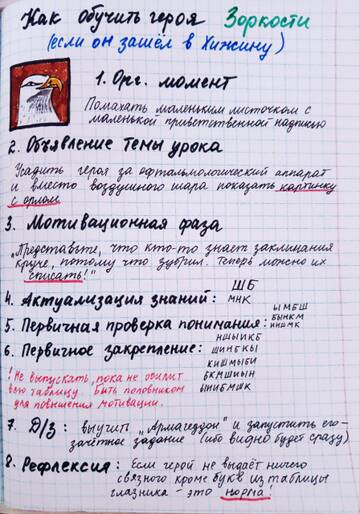 Как обучить героя Зоркости
(если он зашёл в Хижину)
1. Орг. момент
Помахать маленьким листочком с
маленькой приветственной надписью
2. Объявление темы урока
Усадить героя за офтальмологический аппарат
и вместо воздушного шара показать картинку
с орлом.
3. Мотивационная фаза
"Представьте, что кто-то знает заклинания
круче, потому что зубрил. Теперь можно их
списать!"
ШБ
4. Актуализация знаний: МНК
ЫМБШ
5. Первичная проверка понимания: БЫНКМ
ИНШМК
НШЫИКБ
6. Первичное закрепление: ШИМБКЫ
КИШМЫБИ
БКМШИЫН
ЫНИБМШК
! Не выпускать, пока не осилит
всю таблицу. Быть половником
для повышения мотивации.
7. Д/З: выучить „Армагеддон" и запустить его-
зачётное задание (ибо видно будет сразу)
8. Рефлексия: Если герой не выдаёт ничего
связного кроме букв из таблицы
глазника - это норма!